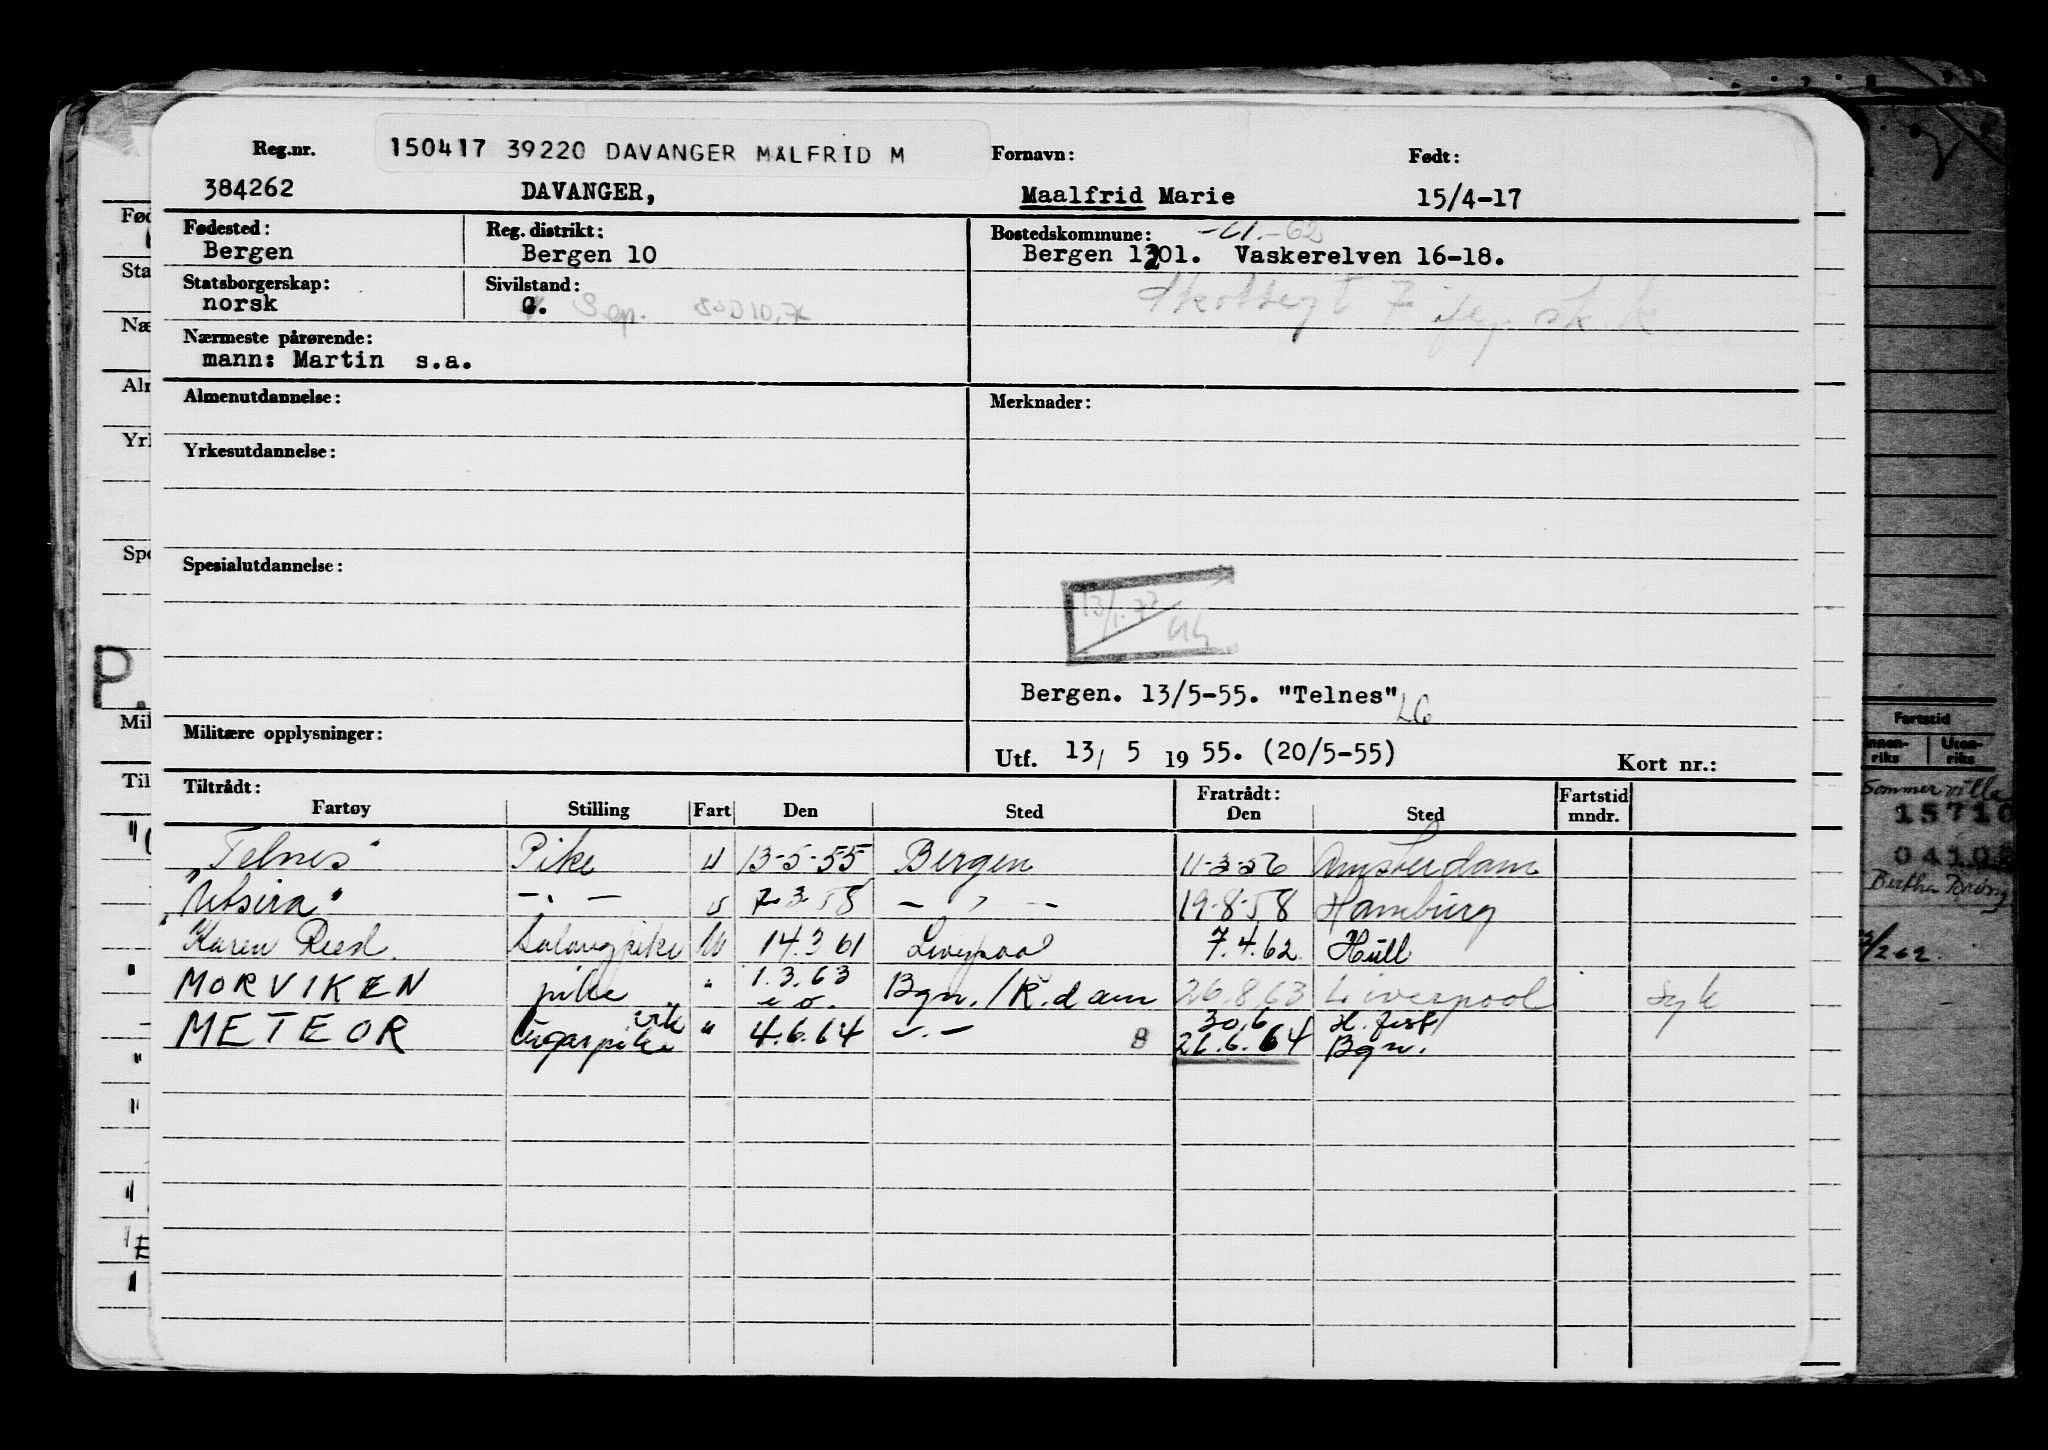 Reg.nr. 150417 39220 DAVANGER MÅLFRID M Fornavn: Født:
384262 DAVANGER, Maalfrid Marie 15/4-17
Fødested: Reg. distrikt: Bostedskommune:
Bergen Bergen 10 Bergen 1201. Vaskerelven 16-18.
Statsborgerskap: Sivilstand:
norsk G. Sep.
Nærmeste pårørende:
mann: Martin s.a.
Almenutdannelse: Merknader:
Yrkesutdannelse:
Spesialutdannelse:
Bergen. 13/5-55. "Telnes"
Militære opplysninger:
Utf. 13/ 5 1955. (20/5-55) Kort nr.:
Tiltrådt: Fratrådt:
Fartøy Stilling Fart Den Sted Den Sted Fartstid mndr.
"Telnes" Pike U 13-5-55 Bergen 11-3-56 Amsterdam
"Utsira" -"- U 7-3-58 -"- 19-8-58 Hamburg
"Karen Reed Salongpike U 14.3 61 Liverpool 7.4.62 Hull
MORVIKEN pike " 1.3.63 Bgn./R.dam 26.8.63 Liverpool Syk
METEOR lugarpike " 4.6.64 -"- 30.6 H.fest
26.6.64 Bgn.
P.
Fartstid
Innen-riks Uten-riks
Sommerville
15710